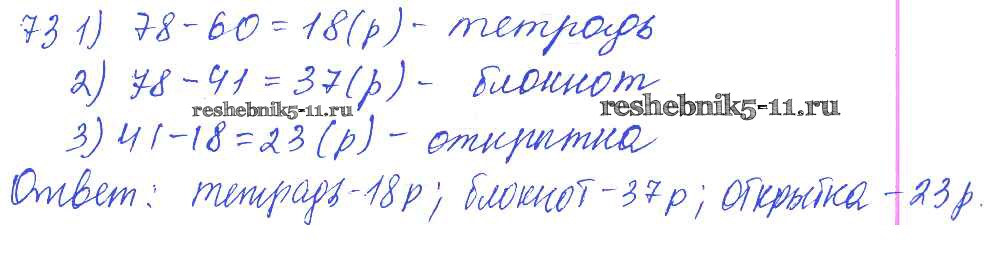 73 1) 78-60=18(р)- тетрадь
2) 78-41=37(р)- блокнот
reshebnik5-11.ru reshebnik5-11.ru
3) 41-18=23(р)- открытка
Ответ: тетрадь-18р; блокнот-37р; открытка-23р.